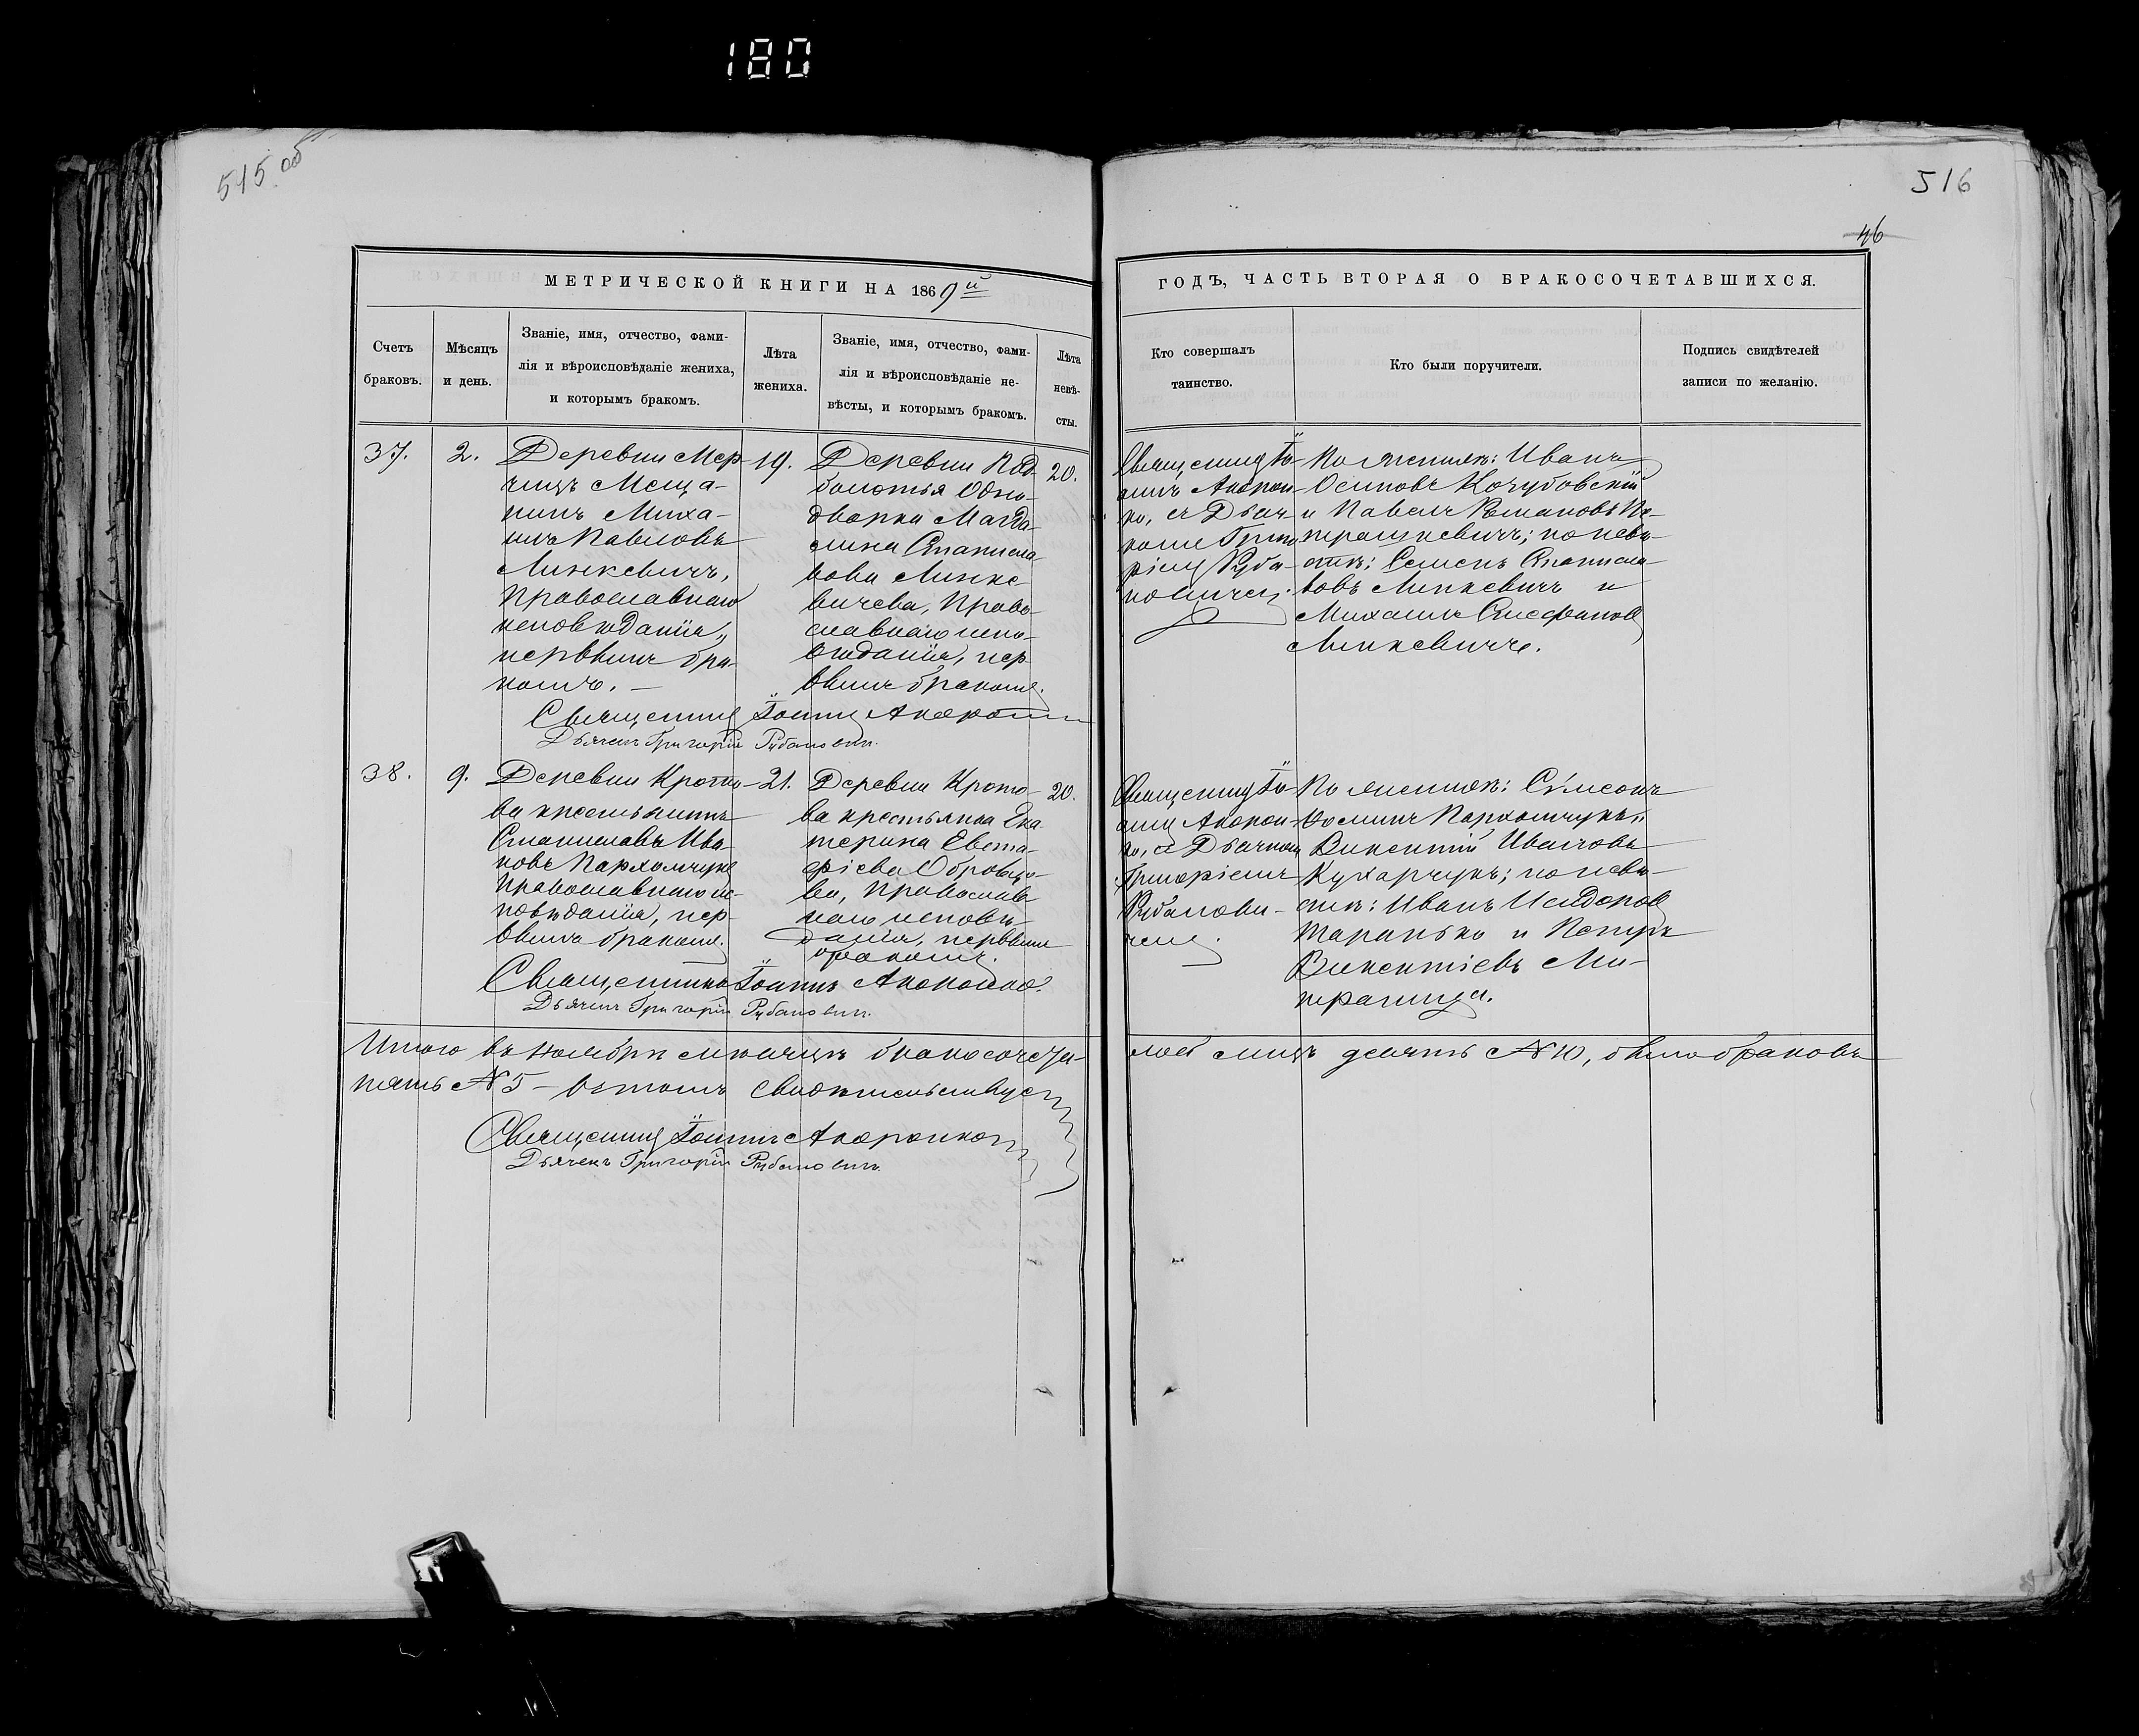 180
515 об
516
46
МЕТРИЧЕСКОЙ КНИГИ НА 1869й
ГОДЪ, ЧАСТЬ ВТОРАЯ О БРАКОСОЧЕТАВШИХСЯ.
Счетъ
браковъ.
Мѣсяцъ
и день.
Званіе, имя, отчество, фами-
лія и вѣроисповѣданіе жениха,
и которымъ бракомъ.
Лѣта
жениха.
Званіе, имя, отчество, фами-
лія и вѣроисповѣданіе не-
вѣсты, и которымъ бракомъ.
Лѣта
невѣ-
сты.
Кто совершалъ
таинство.
Кто были поручители.
Подпись свидѣтелей
записи по желанію.
37.
2.
Деревни Мер-
чицъ Меща-
нинъ Миха-
илъ Павловъ
Линкевичъ,
Православнаго
исповѣданія,
первымъ бра-
комъ.
19.
Деревни Под-
болотья Одно-
дворка Магда-
лина Станисла-
вова Линке-
вичева, Право-
славнаго испо-
вѣданія, пер-
вымъ бракомъ.
20.
Священникъ Іо-
аннъ
съ Дьяч-
комъ Григо-
ріемъ Руба-
новичемъ.
По женихѣ: Иванъ
Осиповъ Кочубовскій
и Павелъ Романовъ Пе-
трашкевичъ; по невѣ-
стѣ: Семенъ Станисла-
вовъ Линкевичъ и
Михаилъ Стефановъ
Линкевичъ.
Священникъ Іоаннъ
Дьячекъ Григорій Рубановичъ.
38.
9.
Деревни Крото-
ва крестьянинъ
Станиславъ Ива-
новъ Пархомчукъ
Православнаго ис-
повѣданія, пер-
вымъ бракомъ.
21.
Деревни Крото-
ва крестьянка Ека-
терина Евста-
фіева
Православ-
наго исповѣ-
данія, первымъ
бракомъ.
20.
Священникъ Іо-
аннъ
съ Дьячкомъ
Григоріемъ
Рубанови-
чемъ.
По женихѣ: Сѵмеонъ
Пархомчукъ и
Викентій Ивановъ
Кухарчукъ; по невѣ-
стѣ: Иванъ Исидоровъ
Таранько и Петръ
Викентіевъ Ми-
Священникъ Іоаннъ
Дьячекъ Григорій Рубановичъ.
Итого въ Ноябрѣ мѣсяцѣ бракосочета-
лось лицъ десять № 10, было браковъ
пять № 5 – въ томъ свидѣтельствуемъ
Священникъ Іоаннъ
Дьячекъ Григорій Рубановичъ.